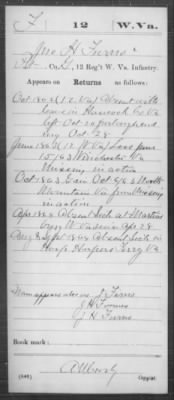 F 12 W.Va.
Jno H. Furns
Co. , 12 Reg't W. Va. Infantry.
Appears on
Returns as follows:
Oct 1862 (12 Va) Absent with
leave in Hancock Co Va
left Oct
Oct 28
June 1863 (12 W Va) Loss June
15/63 Winchester Va
Missing in action
Oct 1863 Gain Oct 6/63 North
Mountain Va from Missing
in action
Apr 1864 Absent sick at Martins
burg W Va since Apr 28
Aug & Sept 1864 Absent sick in
Hosp Harpers Ferry Va
Name appears also as J Furns
J H Furns
J H Furns
Book mark:
(546)
Copyist.